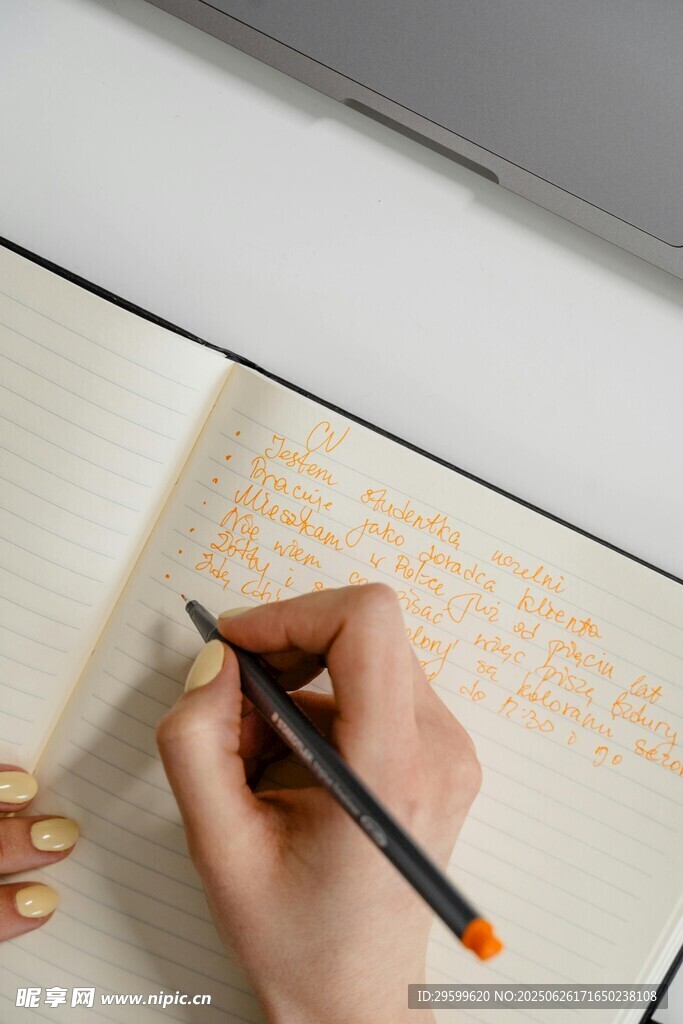 CV
• Jestem studentką uczelni
• Pracuję jako doradca klienta
• Mieszkam w Polsce już od pięciu lat
• Nie wiem co pisać więc piszę bzdury
• Żółty i są kolorami
• Idę do 17:30 i
昵享网 www.nipic.cn
ID:29599620 NO:20250626171650238108